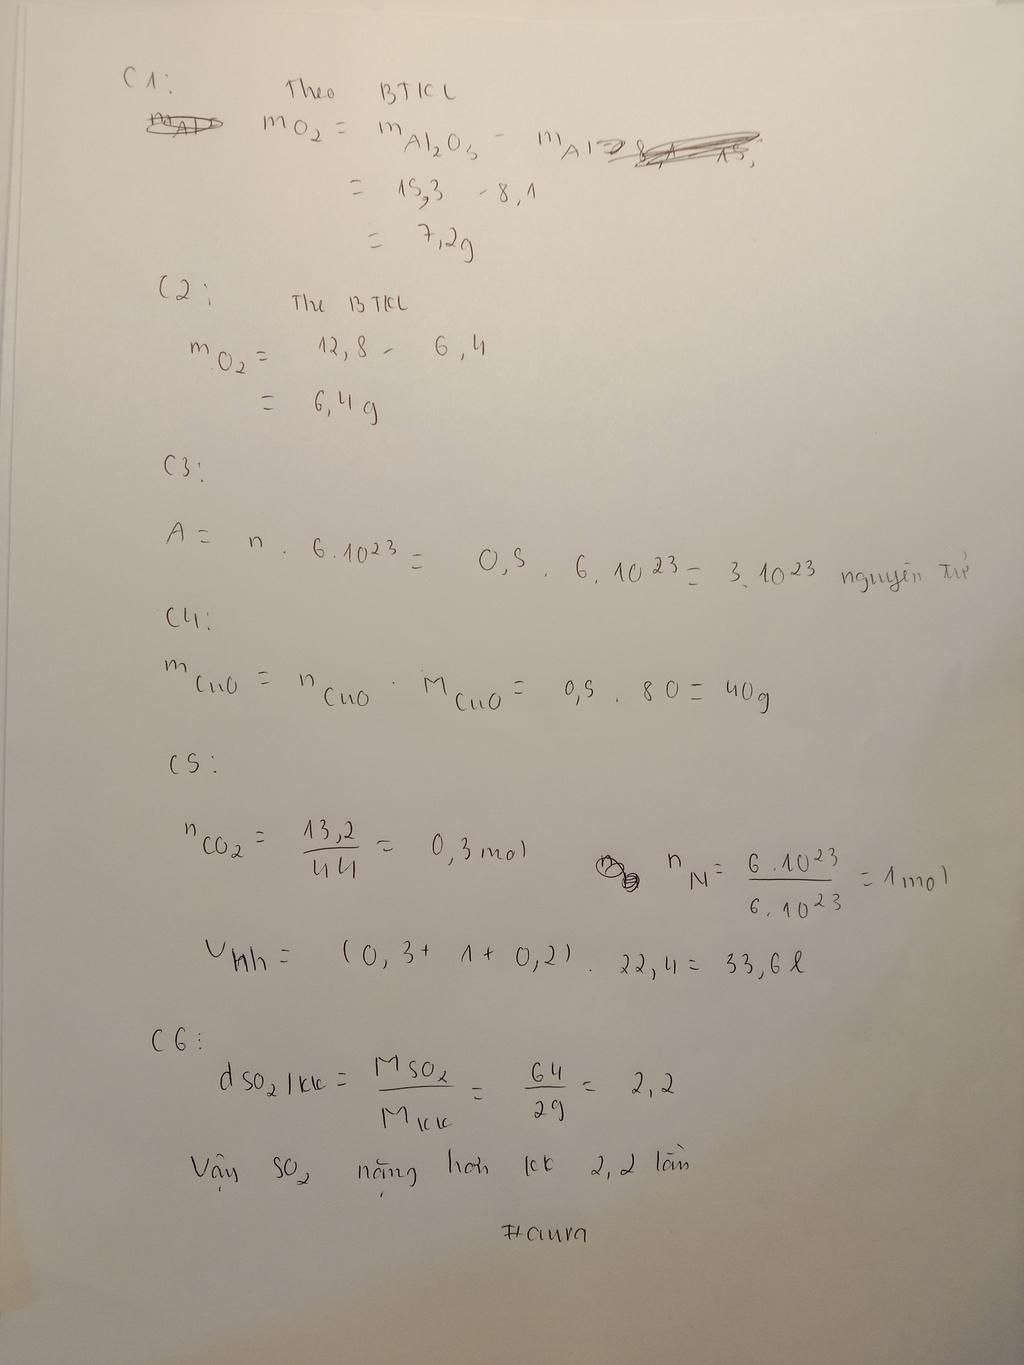 C1: Theo BTKL
mO₂ = mAl₂O₃ - mAl
= 15,3 - 8,1
= 7,2g
C2: The BTKL
mO₂ = 12,8 - 6,4
= 6,4g
C3:
A = n . 6.10²³ = 0,5 . 6.10²³ = 3.10²³ nguyên tử
C4:
mCuO = nCuO . MCuO = 0,5 . 80 = 40g
C5:
nCO₂ = 13,2/44 = 0,3 mol nN = 6.10²³/6.10²³ = 1 mol
Vhh = (0,3 + 1 + 0,2) . 22,4 = 33,6 l
C6:
dSO₂/KK = MSO₂/MKK = 64/29 = 2,2
Vậy SO₂ nặng hơn KK 2,2 lần
#aura